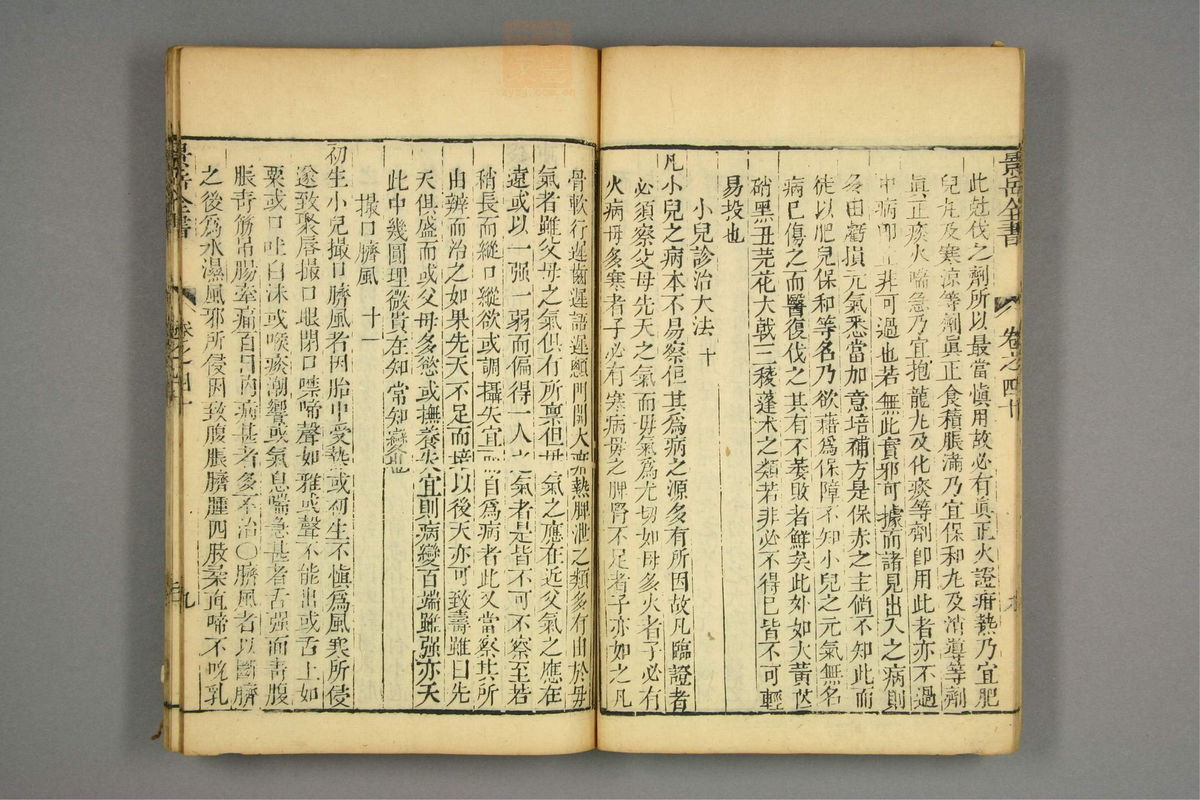 景岳全書
卷之四十
此尅伐之劑所以最當慎用故必有眞正火證疳熱乃宜肥
兒丸及寒涼等劑眞正食積脹滿乃宜保和丸及消導等劑
眞正痰火喘急乃宜抱龍丸及化痰等劑卽用此者亦不過
中病卽止非可過也若無此實邪可據而諸見出入之病則
多由虧損元氣悉當加意培補方是保赤之主倘不知此而
徒以肥兒保和等名乃欲藉爲保障不知小兒之元氣無名
病已傷之而醫復伐之其有不萎敗者鮮矣此外如大黃芒
硝黑丑芫花大戟三稜蓬朮之類若非必不得已皆不可輕
易投也
小兒診治大法 十
凡小兒之病本不易察但其爲病之源多有所因故凡臨證者
必須察父母先天之氣而母氣爲尤切如母多火者子必有
火病母多寒者子必有寒病母之脾腎不足者子亦如之凡
骨軟行遲齒遲語遲顖門開大疳熱脾泄之類多有由於母
氣者雖父母之氣俱有所禀但母氣之應在近父氣之應在
遠或以一强一弱而偏得一人之氣者是皆不可不察至若
稍長而縱口縱欲或調攝失宜而自爲病者此又當察其所
由辨而治之如果先天不足而培以後天亦可致壽雖曰先
天俱盛而或父母多慾或撫養失宜則病變百端雖强亦夭
此中幾圓理微貴在知常知變也
撮口臍風 十一
初生小兒撮口臍風者因胎中受熱或初生不慎爲風寒所侵
遂致聚唇撮口眼閉口噤啼聲如雅或聲不能出或舌上如
粟或口吐白沫或喉痰潮響或氣息喘急甚者舌强面青腹
脹青筋吊腸牽痛百日內病甚者多不治○臍風者以斷臍
之後爲水濕風邪所侵因致腹脹臍腫四肢柔直啼不吮乳
景岳全書
卷之四十
九